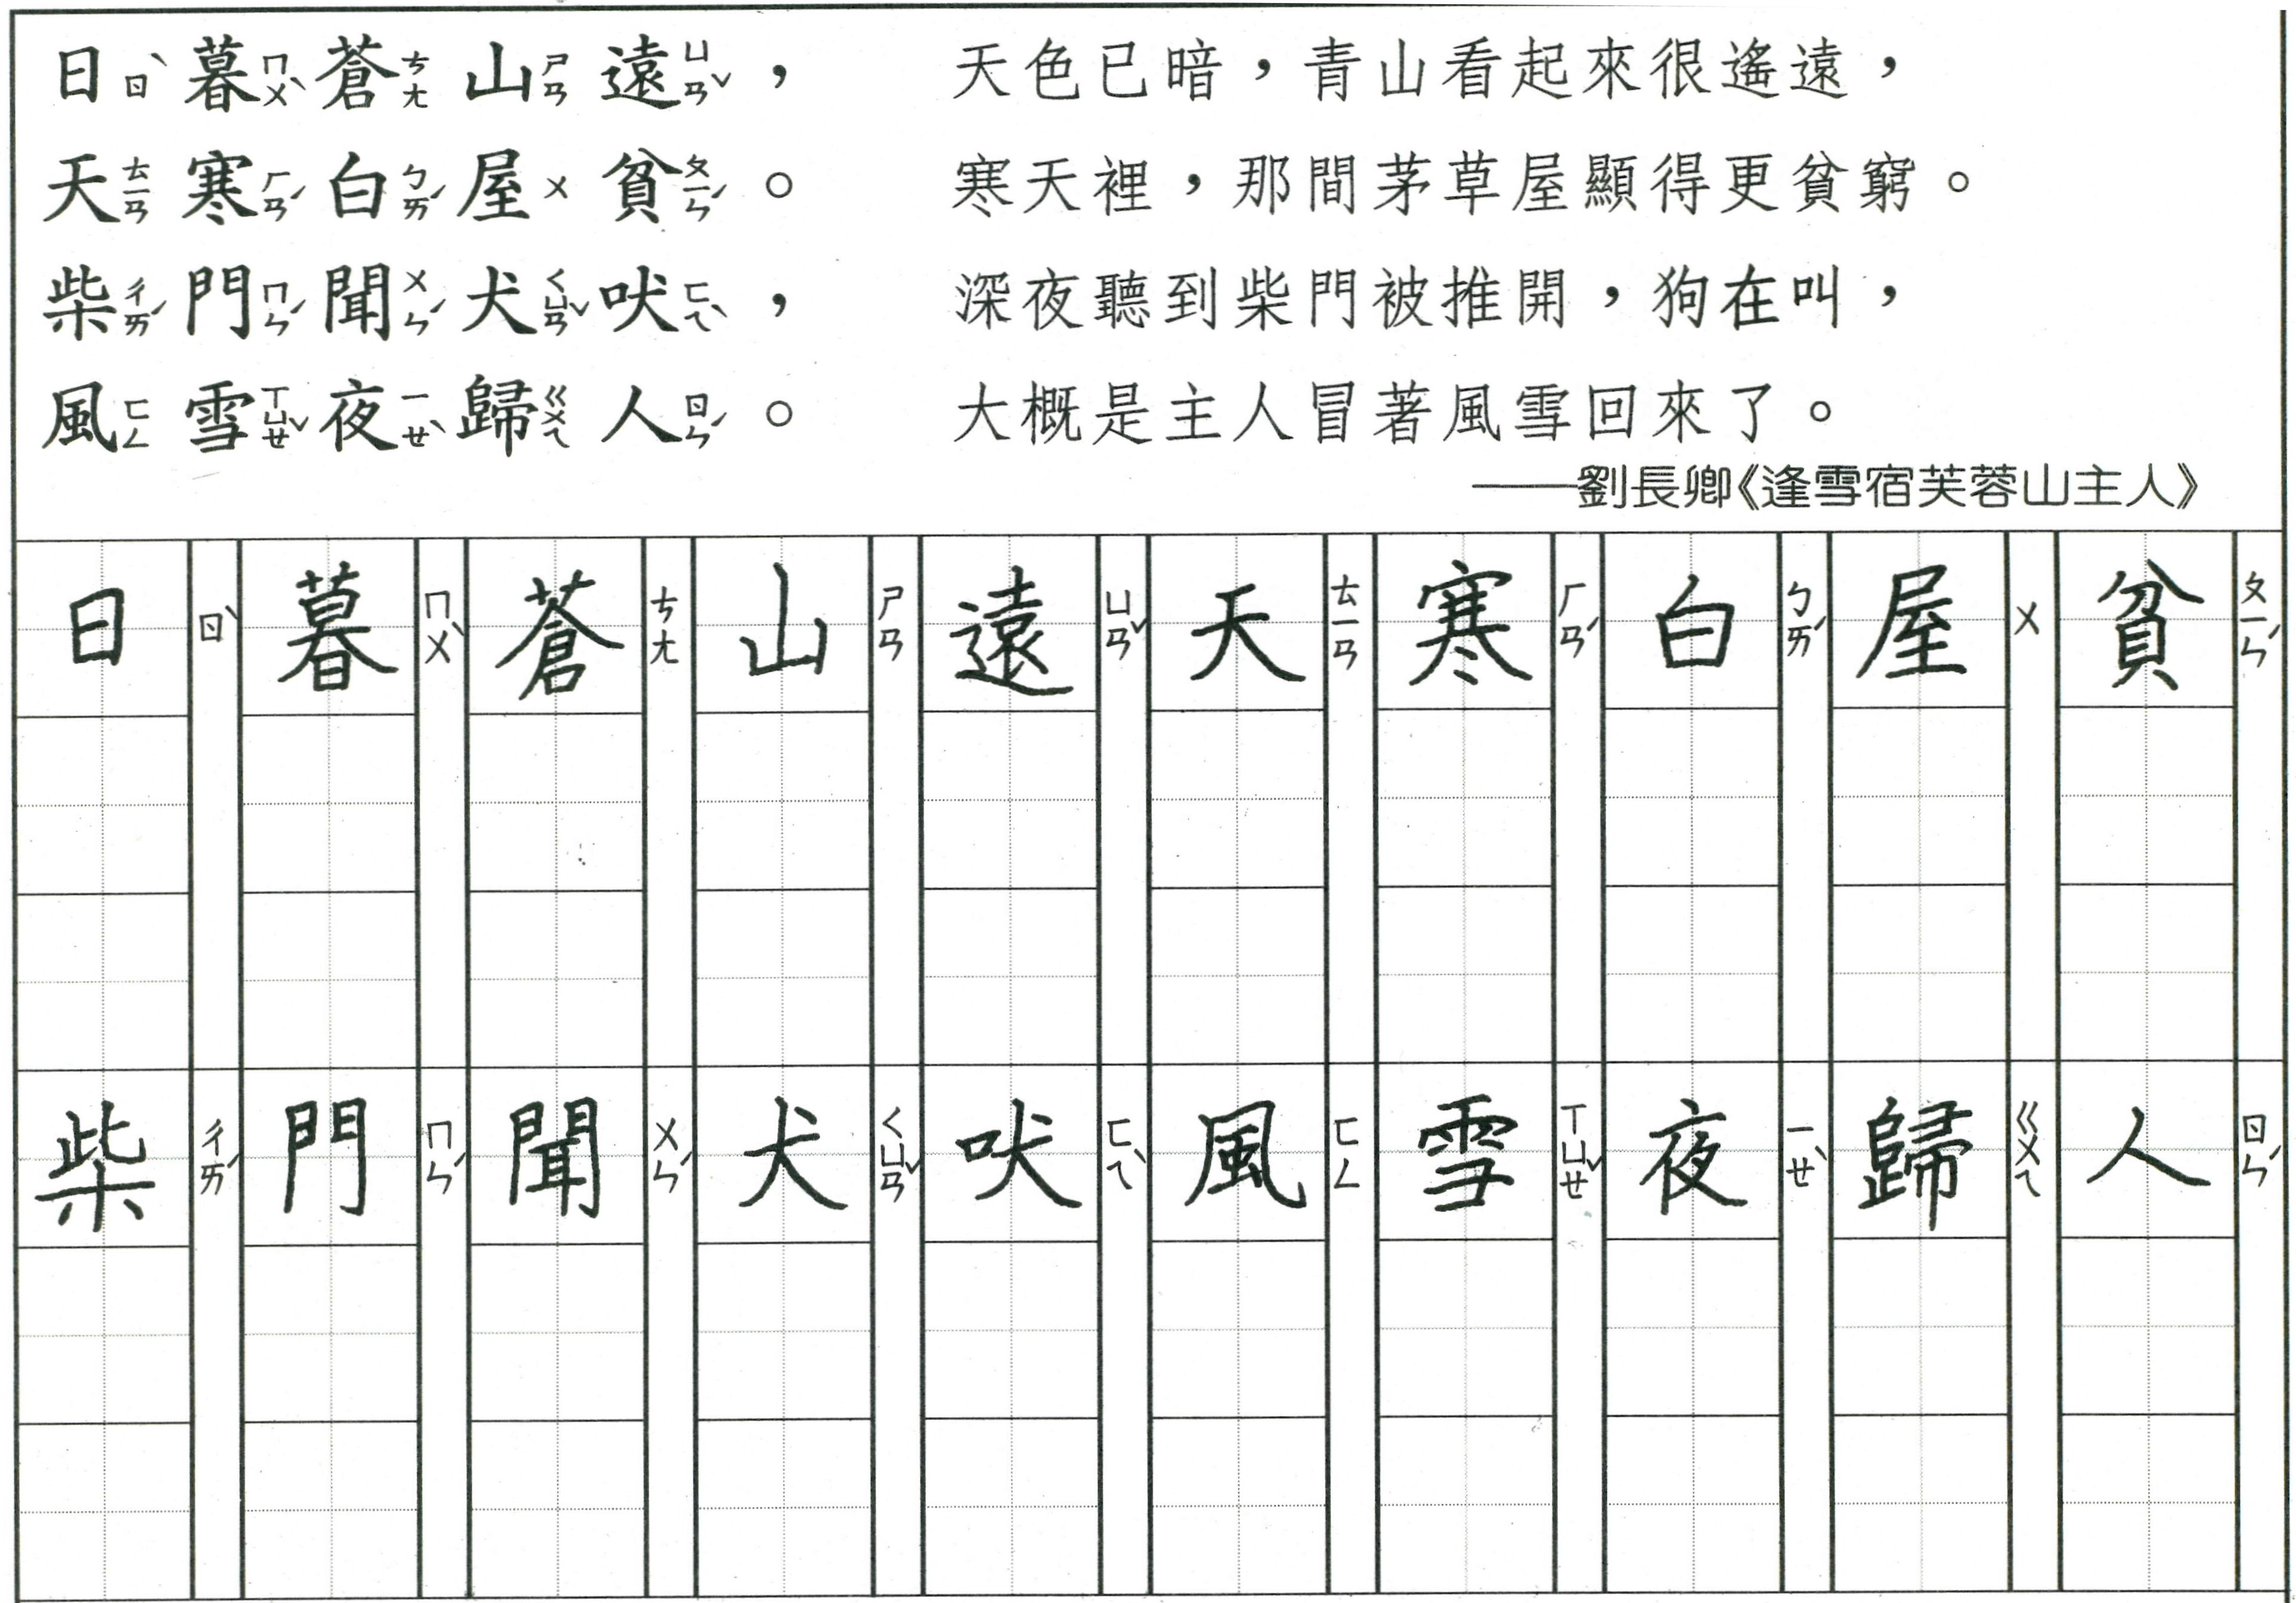 日ㄖˋ暮ㄇㄨˋ蒼ㄘㄤ山ㄕㄢ遠ㄩㄢˇ，　天色已暗，青山看起來很遙遠，
天ㄊㄧㄢ寒ㄏㄢˊ白ㄅㄞˊ屋ㄨ貧ㄆㄧㄣˊ。　寒天裡，那間茅草屋顯得更貧窮。
柴ㄔㄞˊ門ㄇㄣˊ聞ㄨㄣˊ犬ㄑㄩㄢˇ吠ㄈㄟˋ，　深夜聽到柴門被推開，狗在叫，
風ㄈㄥ雪ㄒㄩㄝˇ夜ㄧㄝˋ歸ㄍㄨㄟ人ㄖㄣˊ。　大概是主人冒著風雪回來了。
——劉長卿《逢雪宿芙蓉山主人》
日ㄖˋ暮ㄇㄨˋ蒼ㄘㄤ山ㄕㄢ遠ㄩㄢˇ天ㄊㄧㄢ寒ㄏㄢˊ白ㄅㄞˊ屋ㄨ貧ㄆㄧㄣˊ
柴ㄔㄞˊ門ㄇㄣˊ聞ㄨㄣˊ犬ㄑㄩㄢˇ吠ㄈㄟˋ風ㄈㄥ雪ㄒㄩㄝˇ夜ㄧㄝˋ歸ㄍㄨㄟ人ㄖㄣˊ